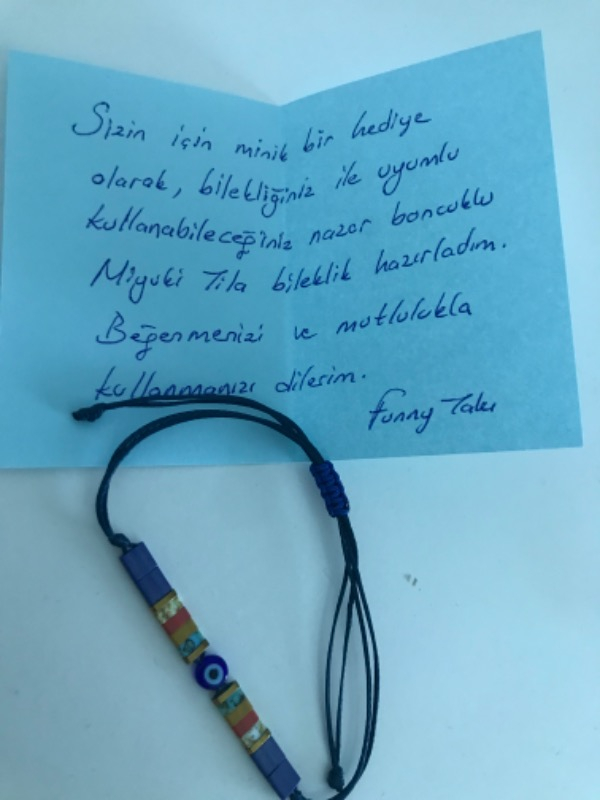 Sizin için minik bir hediye
olarak, bilekliğiniz ile uyumlu
kullanabileceğiniz nazar boncuklu
Miyuki Tila bileklik hazırladım.
Beğenmenizi ve mutlulukla
kullanmanızı dilerim.
Funny Takı